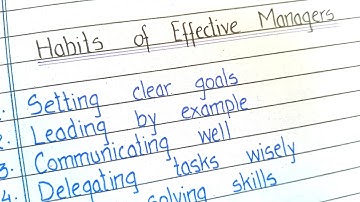 Habits of Effective Managers
1. Setting clear goals
2. Leading by example
3. Communicating well
4. Delegating tasks wisely
solving skills